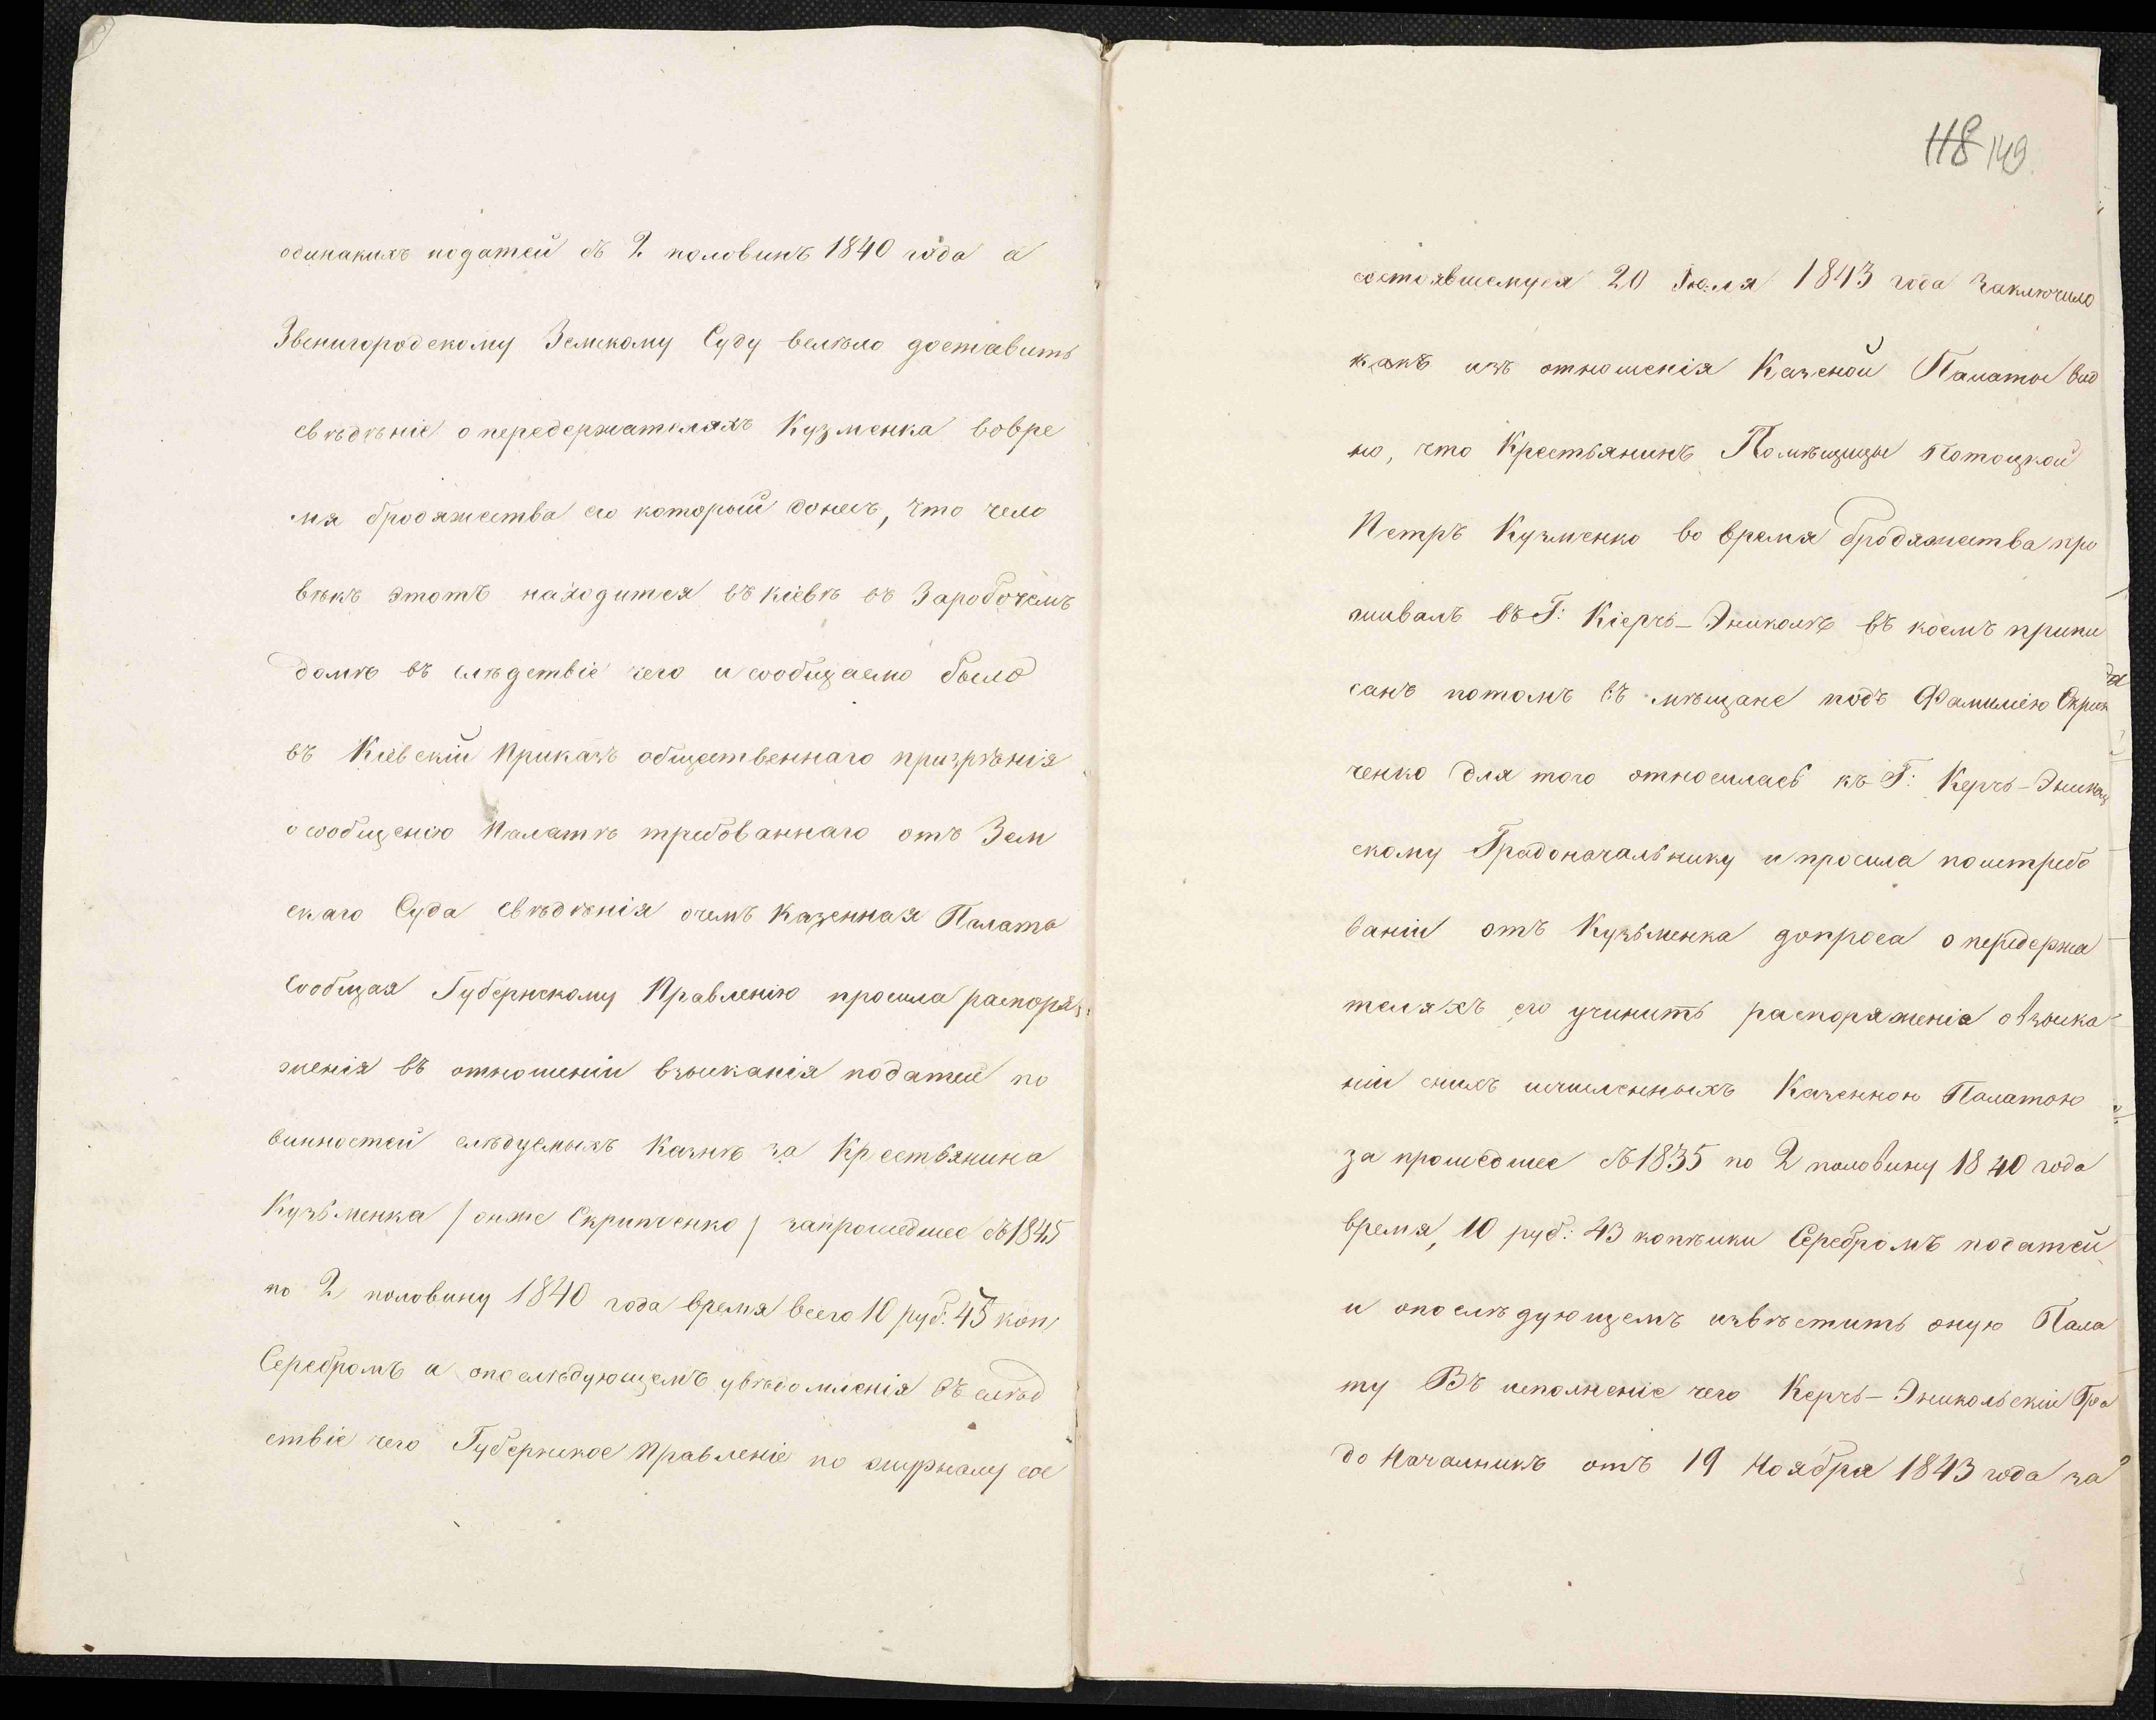 одинакихъ податей съ 2 половинѣ 1840 года а
Звенигородскому Земскому Суду велѣло доставить
свѣдѣніе о передержателяхъ Кузменка вовре
мя бродяжества его который донесъ, что чело
вѣкъ этотъ находится въ Кіевѣ въ Заробочемъ
домѣ въ слѣдствіе чего и сообщаемо было
въ Кіевскій Приказъ общественнаго призрѣнія
о сообщенію Палатѣ требованнаго отъ Зем
скаго Суда свѣдѣнія очемъ Казенная Палата
сообщая Губернскому Правленію просила распоря
женія въ отношеніи взысканія податей по
винностей слѣдуемыхъ Казнѣ за Крестьянина
Кузьменка / онже Скрипченко / запрошедшее съ 1845
по 2 половину 1840 года время всего 10 руб: 43 коп,
Серебромъ и опослѣдующемъ увѣдомленія въ слѣд
ствіе чего Губернское Правленіе по журналу сос
118 149
состоявшемуся 20 Іюля 1843 года заключило
какъ изъ отношенія Казеной Палаты вид
но, что Крестьянинъ Помѣщицы Потоцкой
Петръ Кузменко во время бродяжества про
живалъ въ Г: Кіерчь-Эниколѣ въ коемъ припи
санъ потомъ въ мѣщане подъ Фамиліею Скрип
ченко для того относилась къ Г: Керчь-Эниколь
скому Градоначальнику и просила поистребо
ваніи отъ Кузьменка допроса о передержа
теляхъ его учинить распоряженіе о взыска
ніи снихъ исчисленныхъ Казенною Палатою
за прошедшее съ 1835 по 2 половину 1840 года
время, 10 руб: 43 копѣйки Серебромъ податей
и опослѣдующемъ извѣстить оную Пала
ту Въ исполненіе чего Керчь-Эникольскій Гра
до Начальникъ отъ 19 Ноября 1843 года за